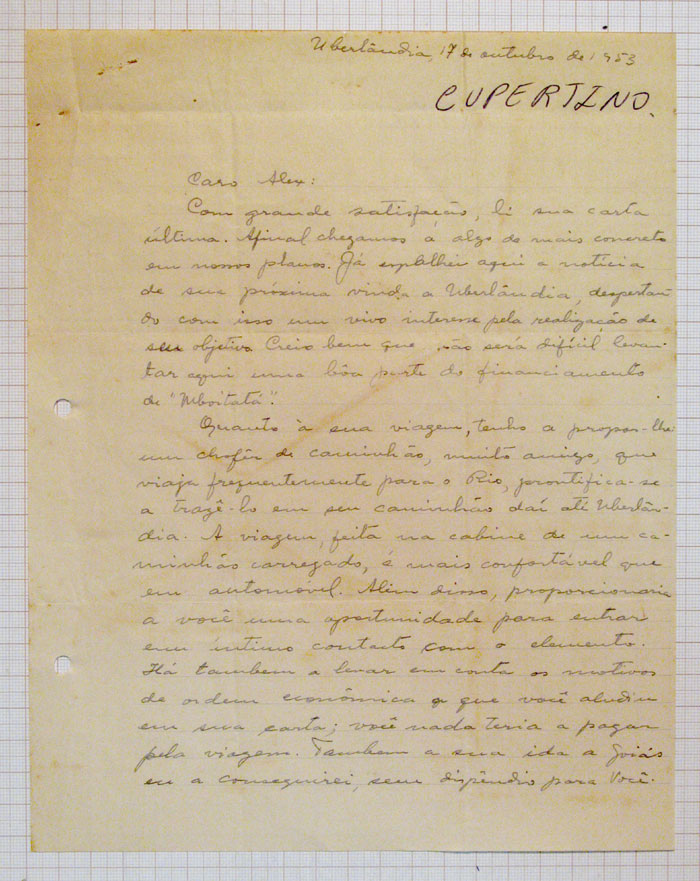 Uberlândia, 17 de outubro de 1953
CUPERTINO.
Caro Alex:
Com grande satisfação, li sua carta
última. Afinal chegamos a algo de mais concreto
em nossos planos. Já espalhei aqui a notícia
de sua próxima vinda a Uberlândia, despertan-
do com isso um vivo interesse pela realização de
seu objetivo. Creio bem que não será difícil levan-
tar aqui uma bôa parte do financiamento
de "Mboitatá".
Quanto à sua viagem, tenho a propor-lhe
um chofér de caminhão, muito amigo, que
viaja frequentemente para o Rio, prontifica-se
a trazê-lo em seu caminhão daí até Uberlân-
dia. A viagem, feita na cabine de um ca-
minhão carregado, é mais confortável que
em automóvel. Alem disso, proporcionaria
a você uma oportunidade para entrar
em íntimo contacto com o elemento.
Há tambem a levar em conta os motivos
de ordem econômica a que você aludiu
em sua carta; você nada teria a pagar
pela viagem. Tambem a sua ida a Goiás
eu a conseguirei, sem dispêndio para Você.